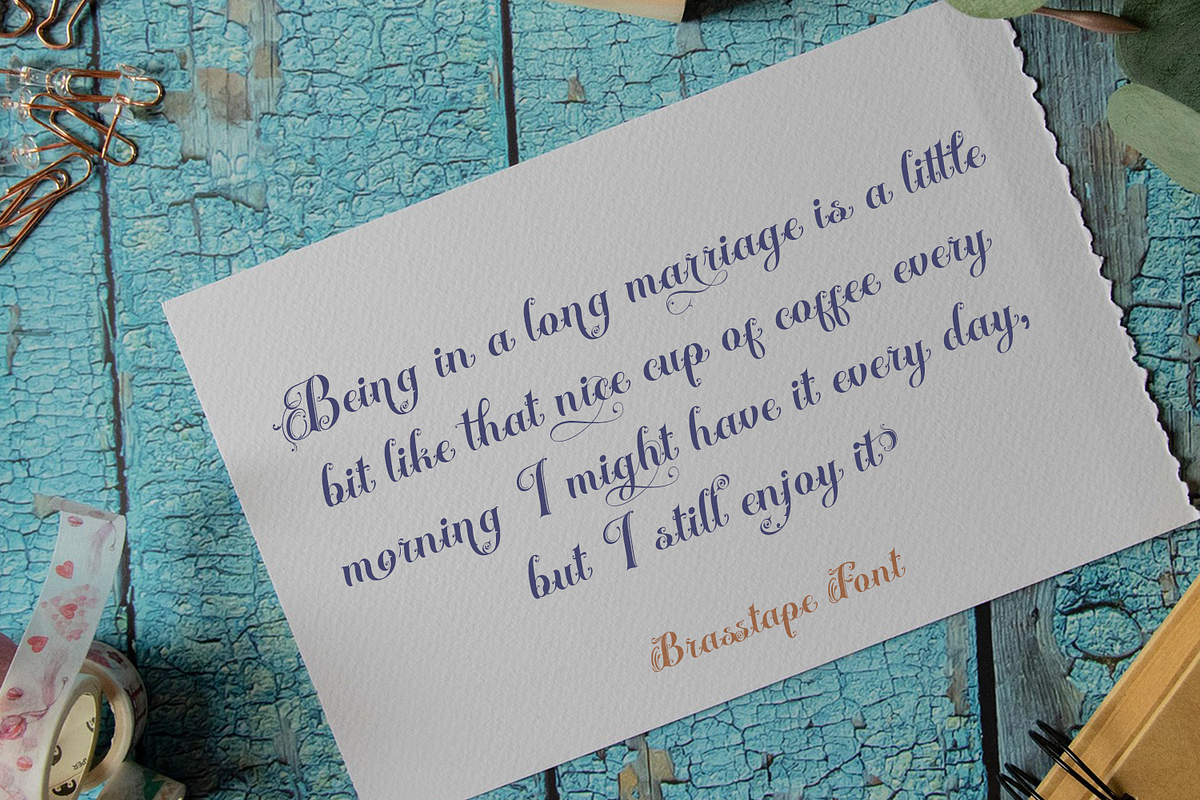 Being in a long marriage is a little
bit like that nice cup of coffee every
morning I might have it every day,
but I still enjoy it
Brasstape Font